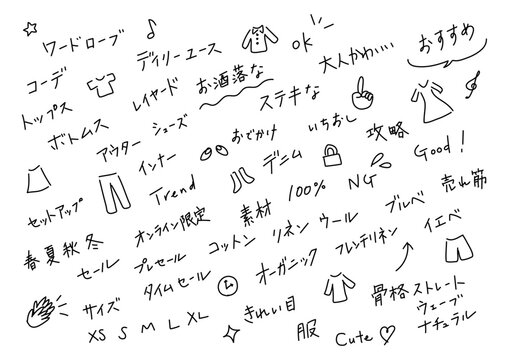 ワードローブ
デイリーユース
ok
大人かわいい
おすすめ
コーデ
トップス
レイヤード
お洒落な
ステキな
ボトムス
アウター
シューズ
おでかけ
いちおし
攻略
Good!
インナー
デニム
セットアップ
Trend
100%
NG
売れ筋
春夏秋冬
オンライン限定
素材
ブルベ
イエベ
セール
プレセール
コットン
リネン
ウール
フレンチリネン
タイムセール
オーガニック
サイズ
きれい目
骨格
ストレート
ウェーブ
ナチュラル
XS S M L XL
服
Cute